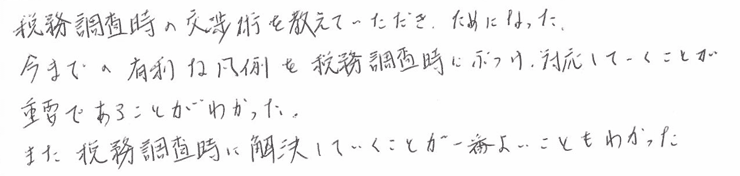 税務調査時の交渉術を教えていただき、ためになった。
今までの有利な凡例を税務調査時にぶつけ、対応していくことが
重要であることがわかった。
また税務調査時に解決していくことが一番よいこともわかった